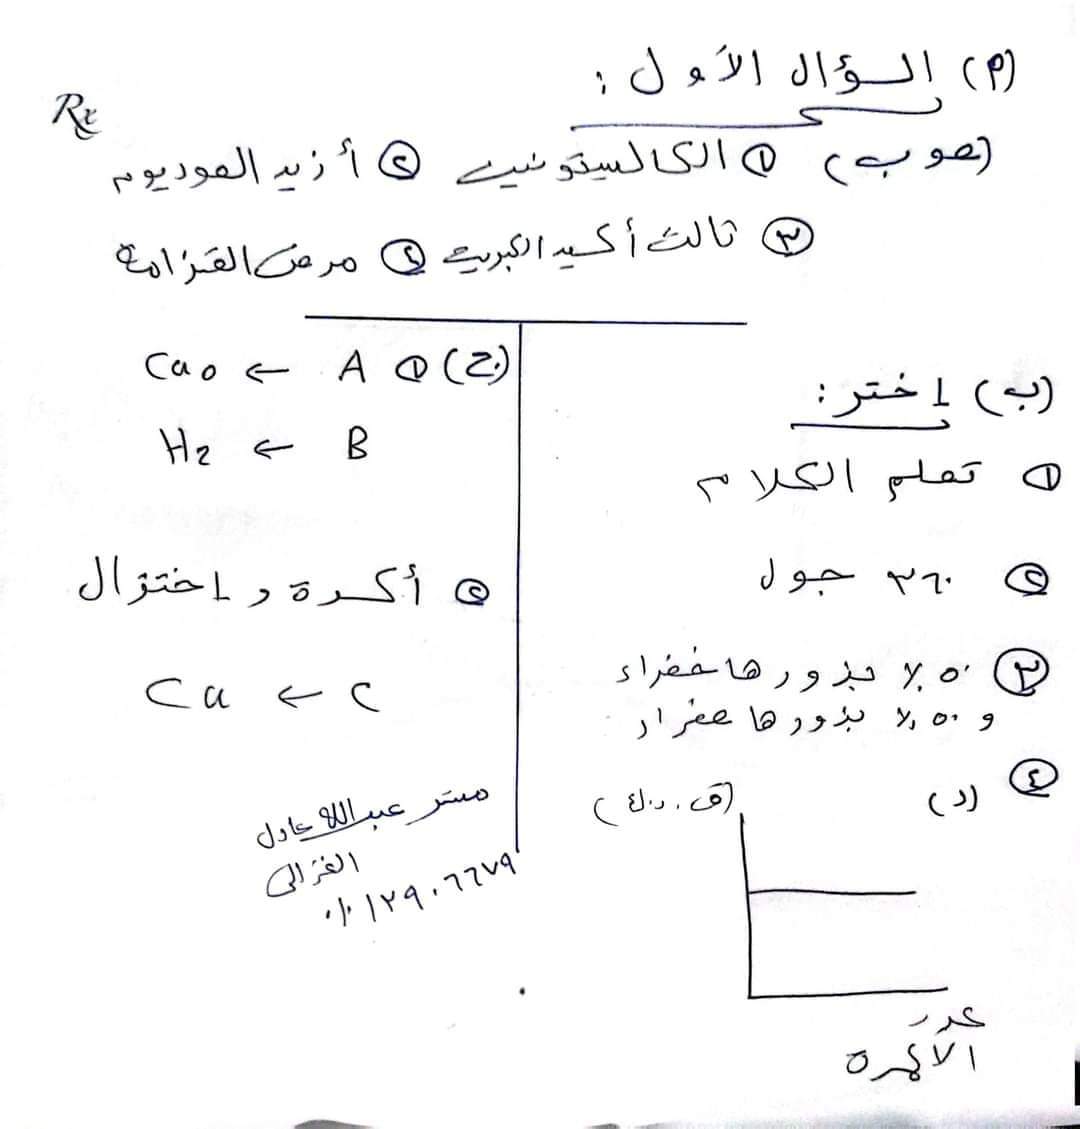 (أ) السؤال الأول :
(صوب) ① الكالسيتونين ② أزيد الصوديوم
③ ثالث أكسيد الكبريت ④ مرض القزامة
(ب) اختر :
① تعلم الكلام
② ٣٦٠ جول
③ ٥٠٪ بذورها خضراء
و ٥٠٪ بذورها صفراء
④ (د)
(ق.د.ك)
عدد
الأعمدة
(ج) ① A ← CaO
B ← H2
② أكسدة و اختزال
C ← Cu
مستر عبدالله عادل
الغزالى
٠١٠١٢٩٠٦٦٧٩